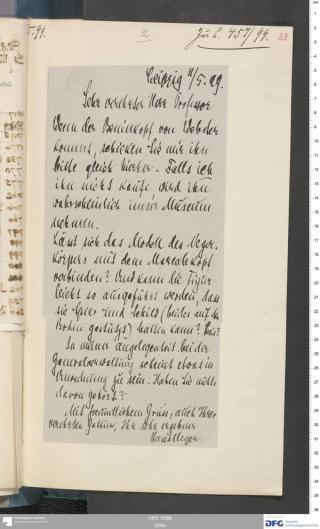 5.99.
2
Zu L. 457/99.
28
Leipzig 11/5.99.
Sehr verehrter Herr Professor
Wenn der Beninkopf von Webster
kommt, schicken Sie mir ihn
bitte gleich hierher. Falls ich
ihn nicht kaufe, wird ihn
wahrscheinlich unser Museum
nehmen.
Lässt sich das Modell des Neger-
körpers mit dem Kopf
verbinden? Und kann die Figur
leicht so ausgeführt werden, dass
sie Speer und Schild (beides auf dem
Boden gestützt) halten kann?
In meiner Angelegenheit bei der
Generalverwaltung scheint etwas in
zu sein. Haben Sie nichts
davon gehört?
Mit freundlichem Gruss, auch Ihrer
verehrten Gattin, Ihr sehr ergebener
Hans Meyer.
VMV 0768
0064
DFG